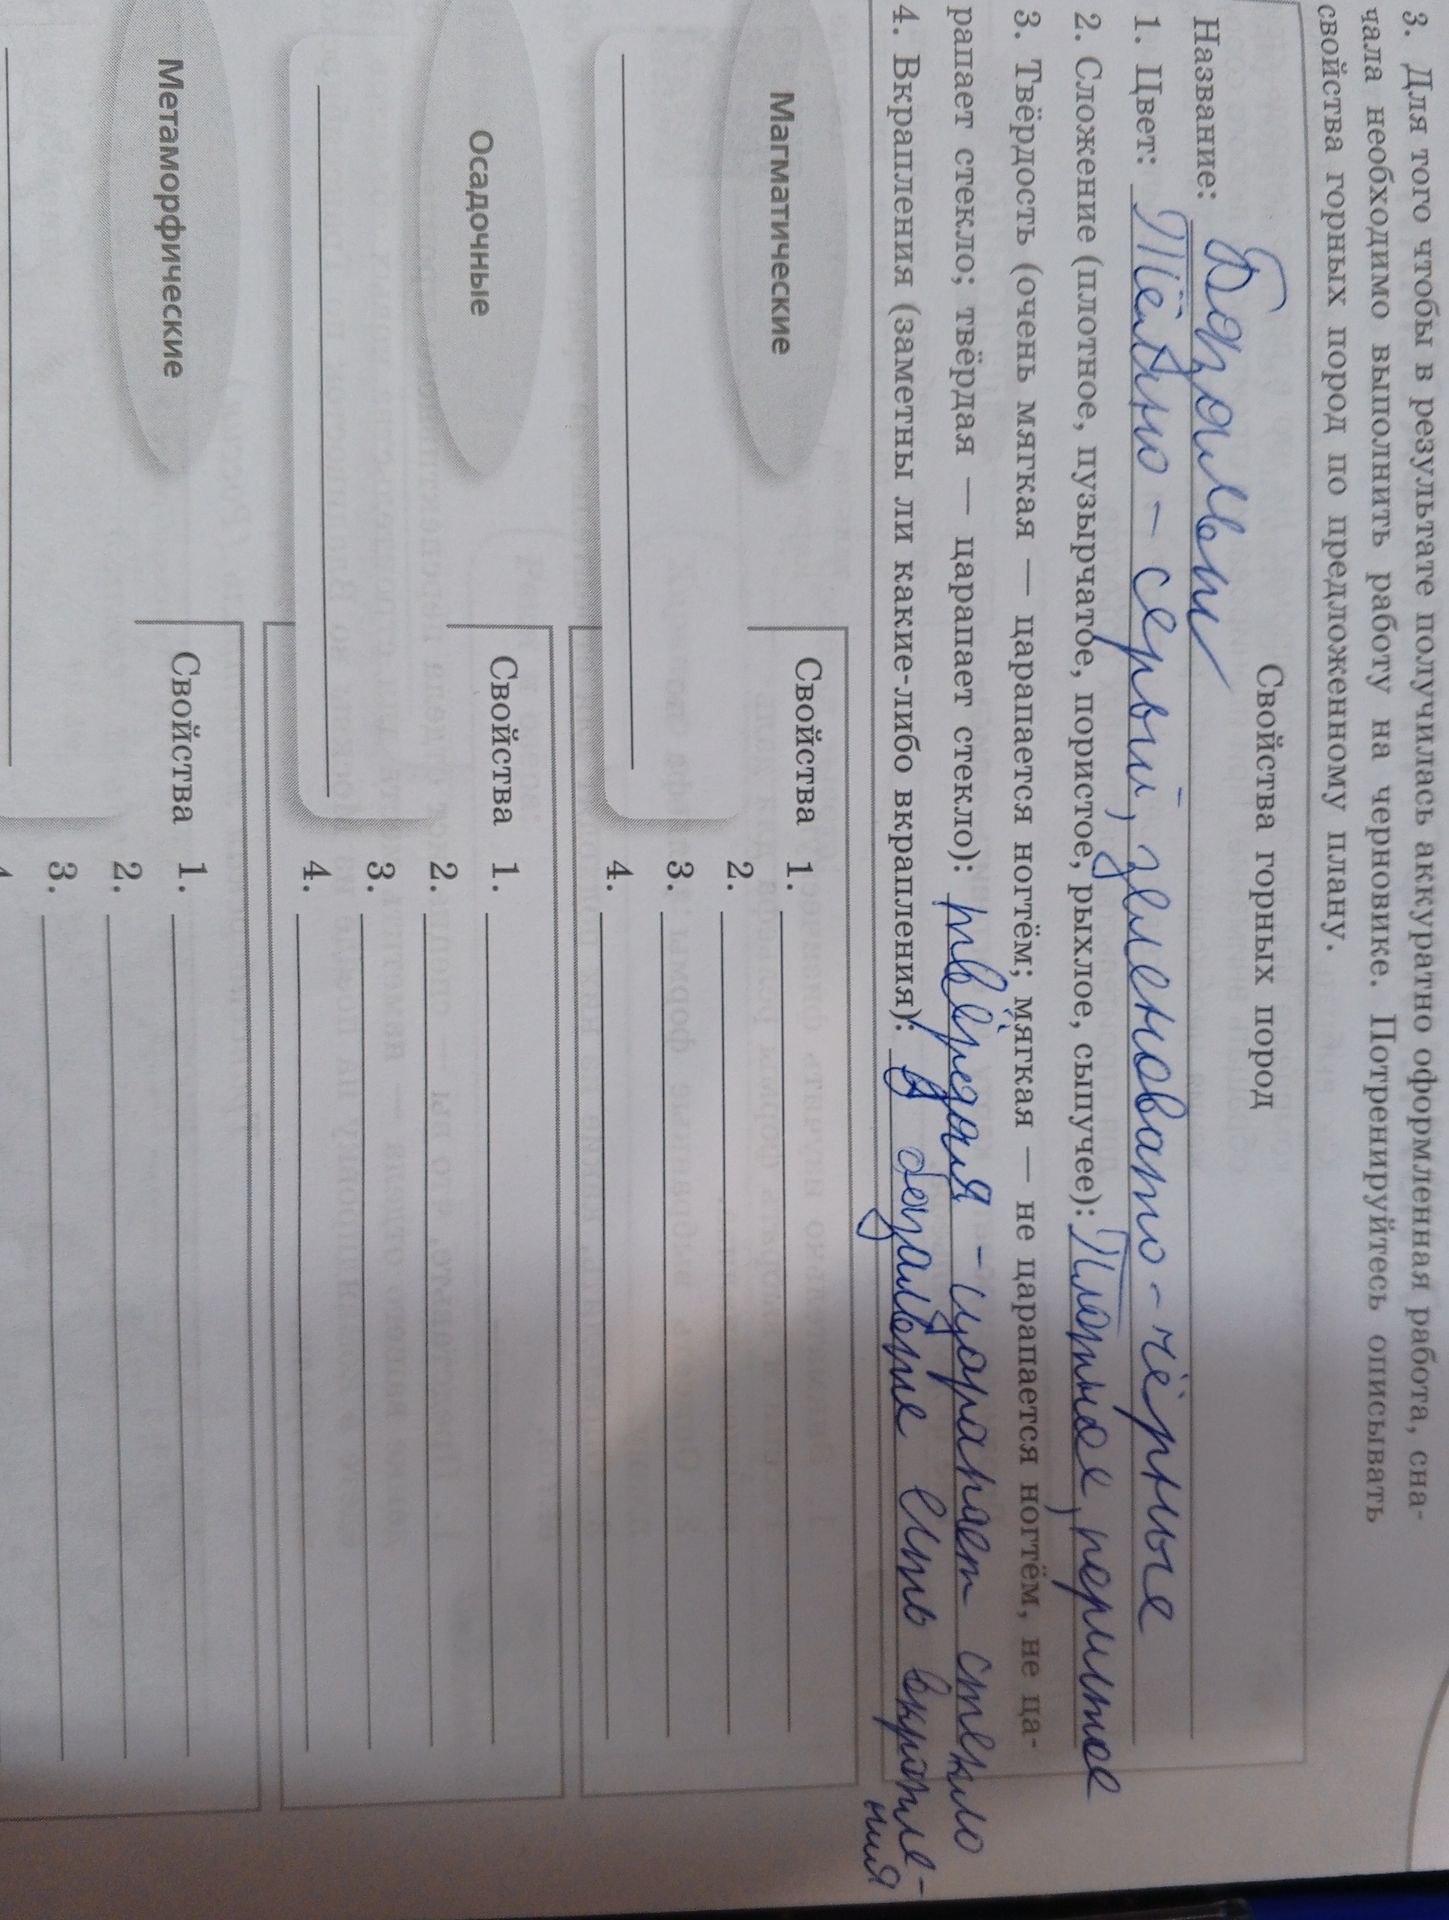 3. Для того чтобы в результате получилась аккуратно оформленная работа, сна-
чала необходимо выполнить работу на черновике. Потренируйтесь описывать
свойства горных пород по предложенному плану.
Свойства горных пород
Название: Базальты
1. Цвет: Тёмно - серый, зеленовато - чёрные
2. Сложение (плотное, пузырчатое, пористое, рыхлое, сыпучее): Плотное, пористое
3. Твёрдость (очень мягкая — царапается ногтём; мягкая — не царапается ногтём, не ца-
рапает стекло; твёрдая — царапает стекло): твёрдая - царапает стекло
4. Вкрапления (заметны ли какие-либо вкрапления): В базальте есть вкрапле-
ния
Магматические
Свойства
1.
2.
3.
4.
Осадочные
Свойства
1.
2.
3.
4.
Метаморфические
Свойства
1.
2.
3.